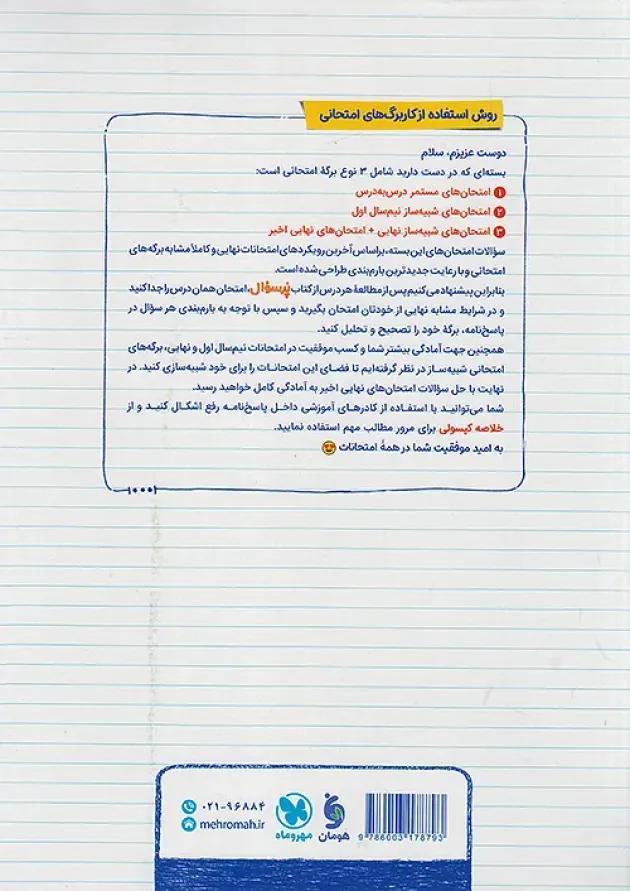 روش استفاده از کاربرگ‌های امتحانی
دوست عزیزم، سلام
بسته‌ای که در دست دارید شامل ۳ نوع برگهٔ امتحانی است:
۱ امتحان‌های مستمر درس‌به‌درس
۲ امتحان‌های شبیه‌ساز نیم‌سال اول
۳ امتحان‌های شبیه‌ساز نهایی + امتحان‌های نهایی اخیر
سؤالات امتحان‌های این بسته، براساس آخرین رویکردهای امتحانات نهایی و کاملاً مشابه برگه‌های
امتحانی و با رعایت جدیدترین بارم‌بندی طراحی شده است.
بنابراین پیشنهاد می‌کنیم پس از مطالعهٔ هر درس از کتاب پُرسؤال، امتحان همان درس را جدا کنید
و در شرایط مشابه نهایی از خودتان امتحان بگیرید و سپس با توجه به بارم‌بندی هر سؤال در
پاسخ‌نامه، برگهٔ خود را تصحیح و تحلیل کنید.
همچنین جهت آمادگی بیشتر شما و کسب موفقیت در امتحانات نیم‌سال اول و نهایی، برگه‌های
امتحانی شبیه‌ساز در نظر گرفته‌ایم تا فضای این امتحانات را برای خود شبیه‌سازی کنید. در
نهایت با حل سؤالات امتحان‌های نهایی اخیر به آمادگی کامل خواهید رسید.
شما می‌توانید با استفاده از کادرهای آموزشی داخل پاسخ‌نامه رفع اشکال کنید و از
خلاصه کپسولی برای مرور مطالب مهم استفاده نمایید.
به امید موفقیت شما در همهٔ امتحانات
۰۲۱-۹۶۸۸۴
mehromah.ir
مهروماه
هومان
9 786003 178793